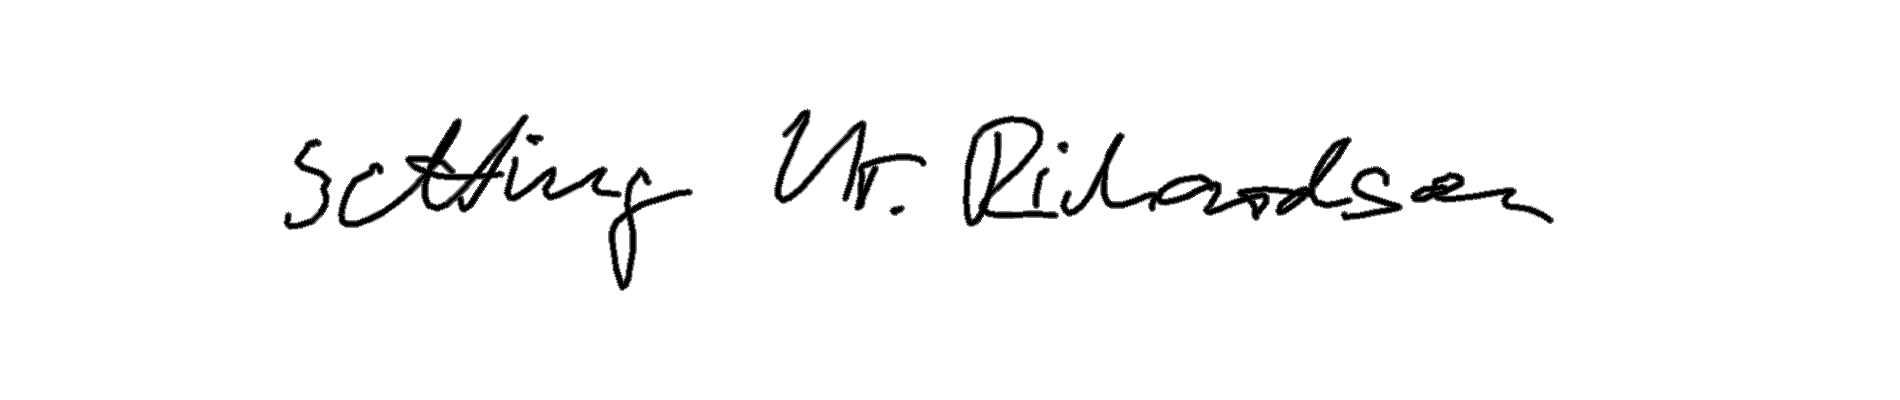 setting Mr. Richardson